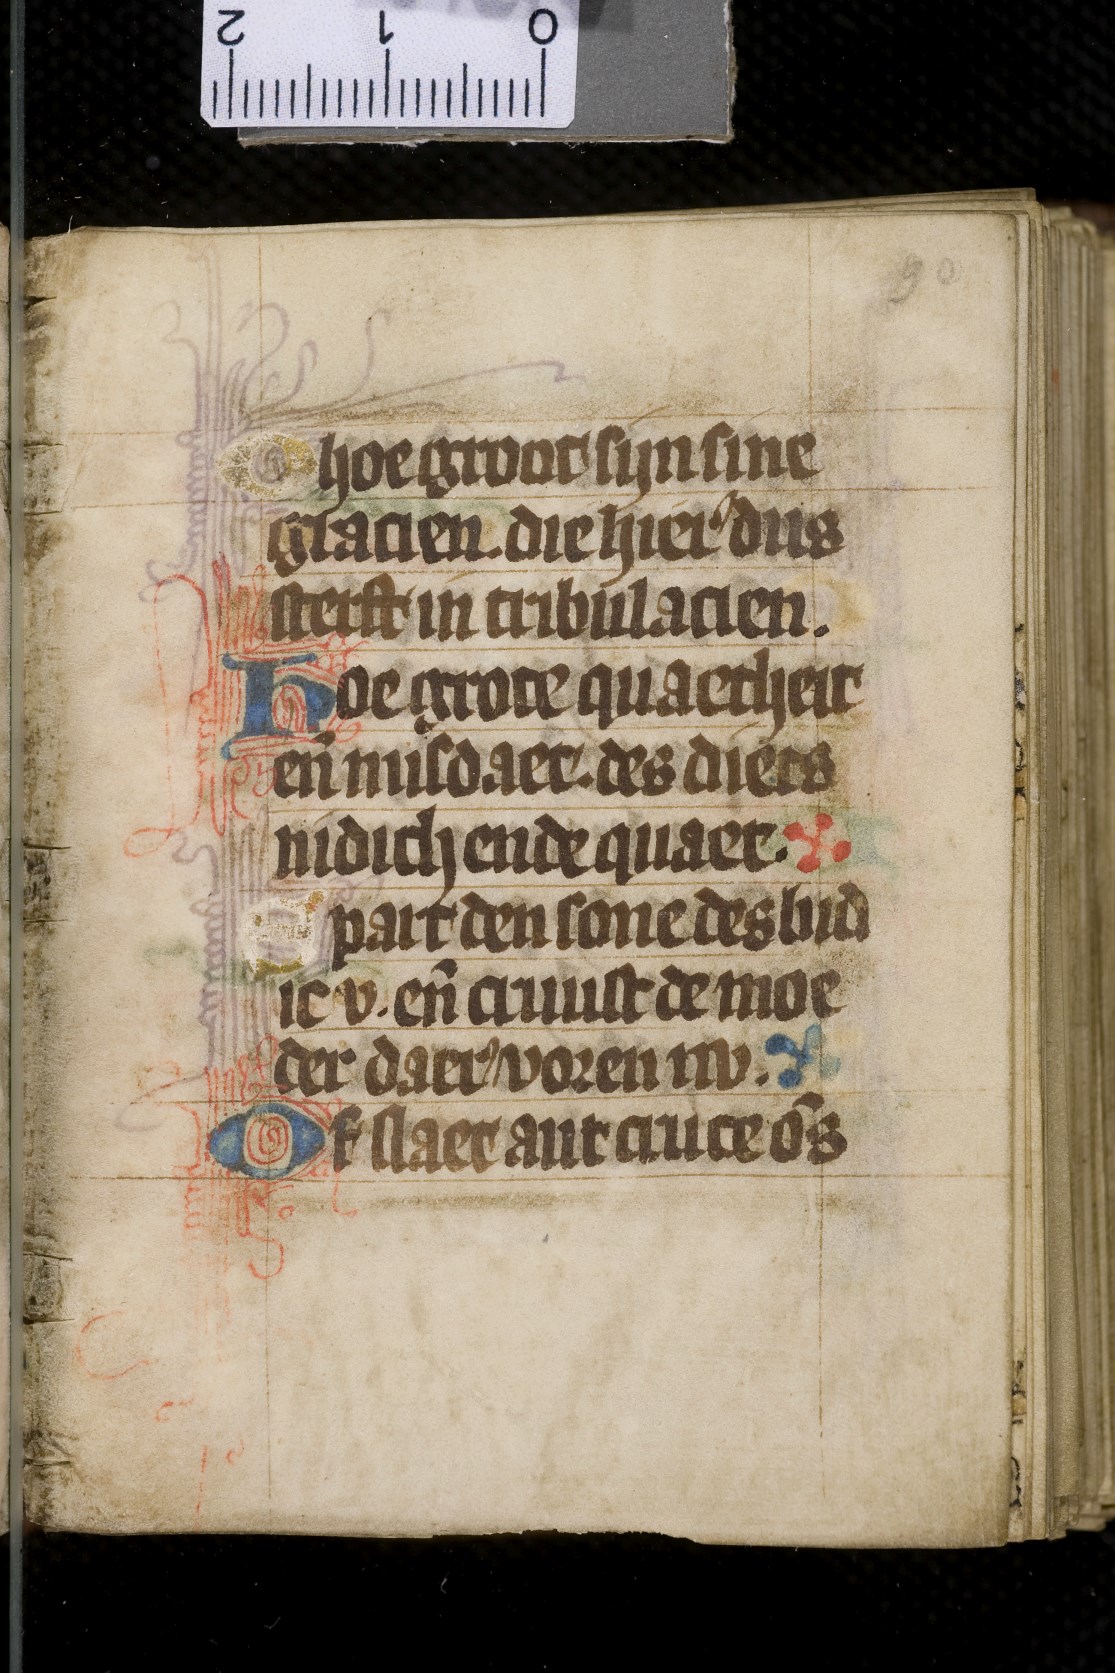 2 1 0
90
O hoe groot sijn sine
gracien. die hier dus
sterft in tribulacien.
Hoe grote quaetheit
en̄ misdaet. des diets
nidich ende quaet.
Spart den sone des bid
ic v. en̄ cruust de moe
der daer voren nv.
Of slaet ant cruce o̅s